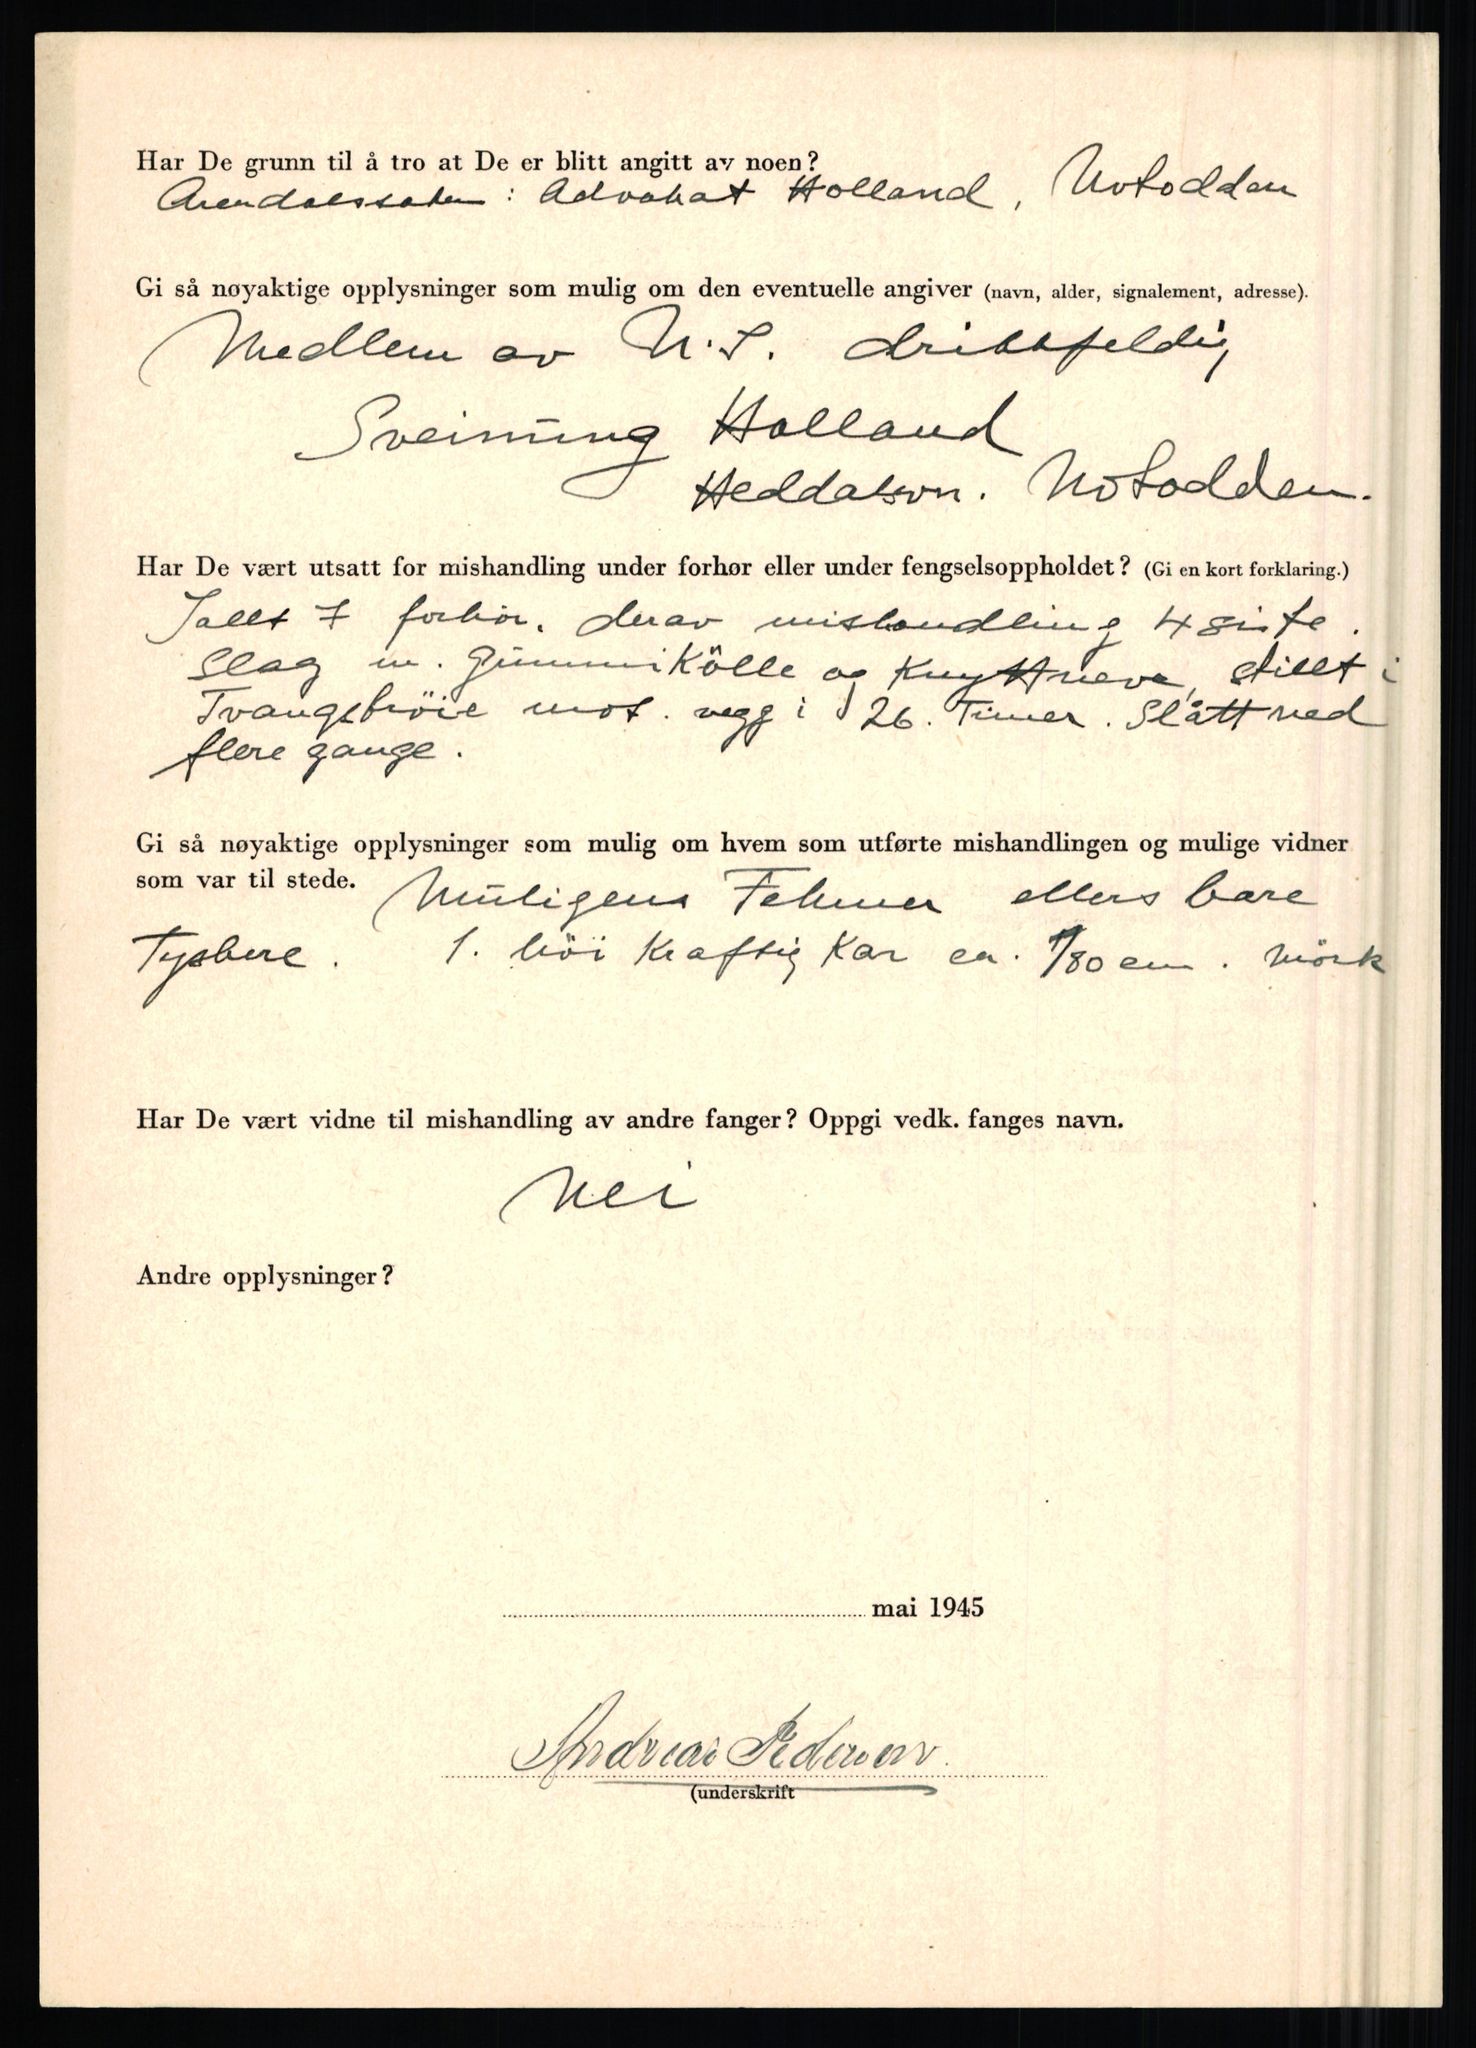 Har De grunn til å tro at De er blitt angitt av noen?
Arendalssaken: Advokat Holland, Notodden
Gi så nøyaktige opplysninger som mulig om den eventuelle angiver (navn, alder, signalement, adresse).
Medlem av N.S. drikkfeldig,
Sveinung Holland
Heddalsvn. Notodden.
Har De vært utsatt for mishandling under forhør eller under fengselsoppholdet? (Gi en kort forklaring.)
Iallt 7 forhör. derav mishandling 4 siste.
Slag m. Gummikölle og Knyttneve, stillt i
Tvangströie mot. vegg i 26. Timer. Slått ned
flere gange.
Gi så nøyaktige opplysninger som mulig om hvem som utførte mishandlingen og mulige vidner
som var til stede. Muligens Fehmer ellers bare
Tyskere. 1. höi Kraftig Kar ca. 180 cm. Mörk
Har De vært vidne til mishandling av andre fanger? Oppgi vedk. fanges navn.
Nei
Andre opplysninger?
mai 1945
Andreas Pedersen.
(underskrift